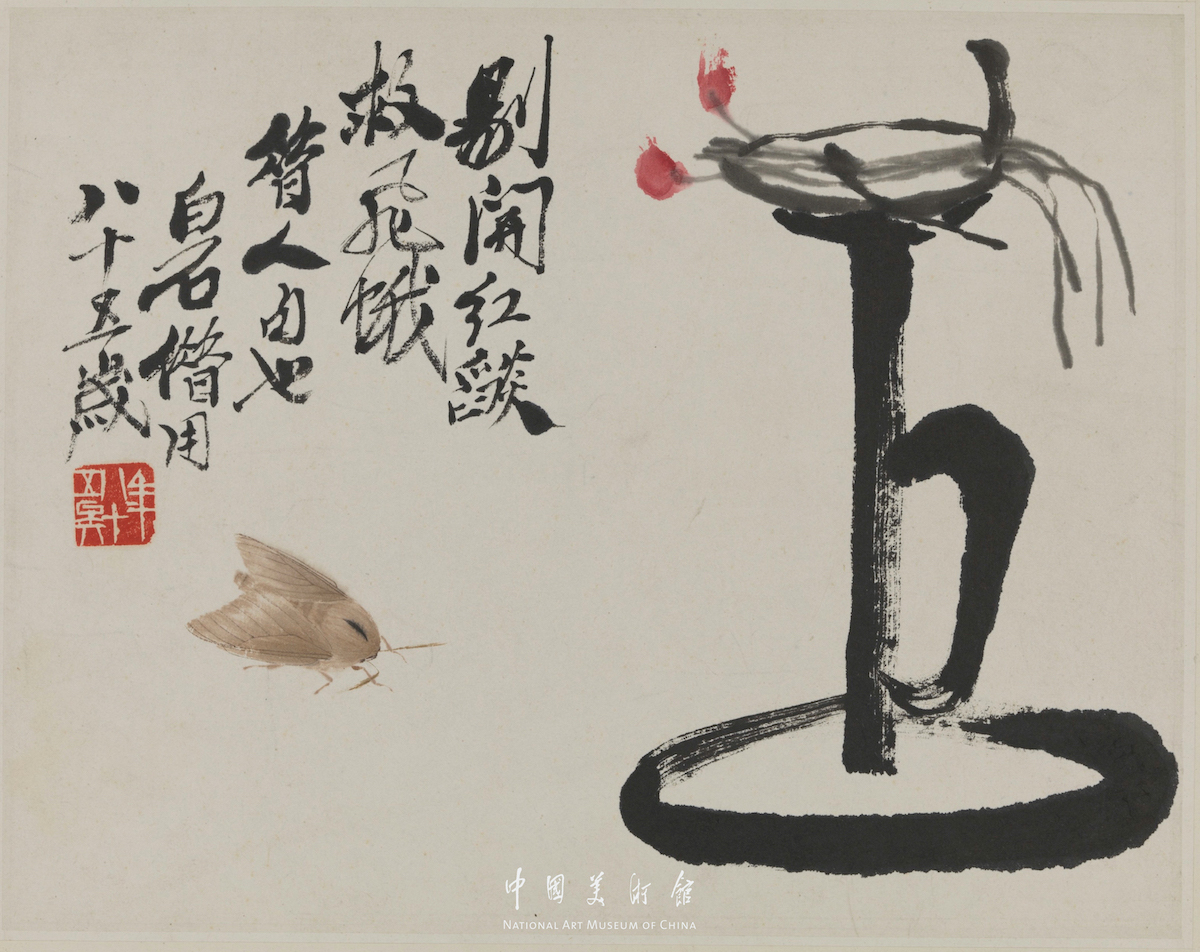 剔開紅燄
救飛蛾
昔人句也
白石借用
八十五歲
年八十五矣
中國美術館
NATIONAL ART MUSEUM OF CHINA